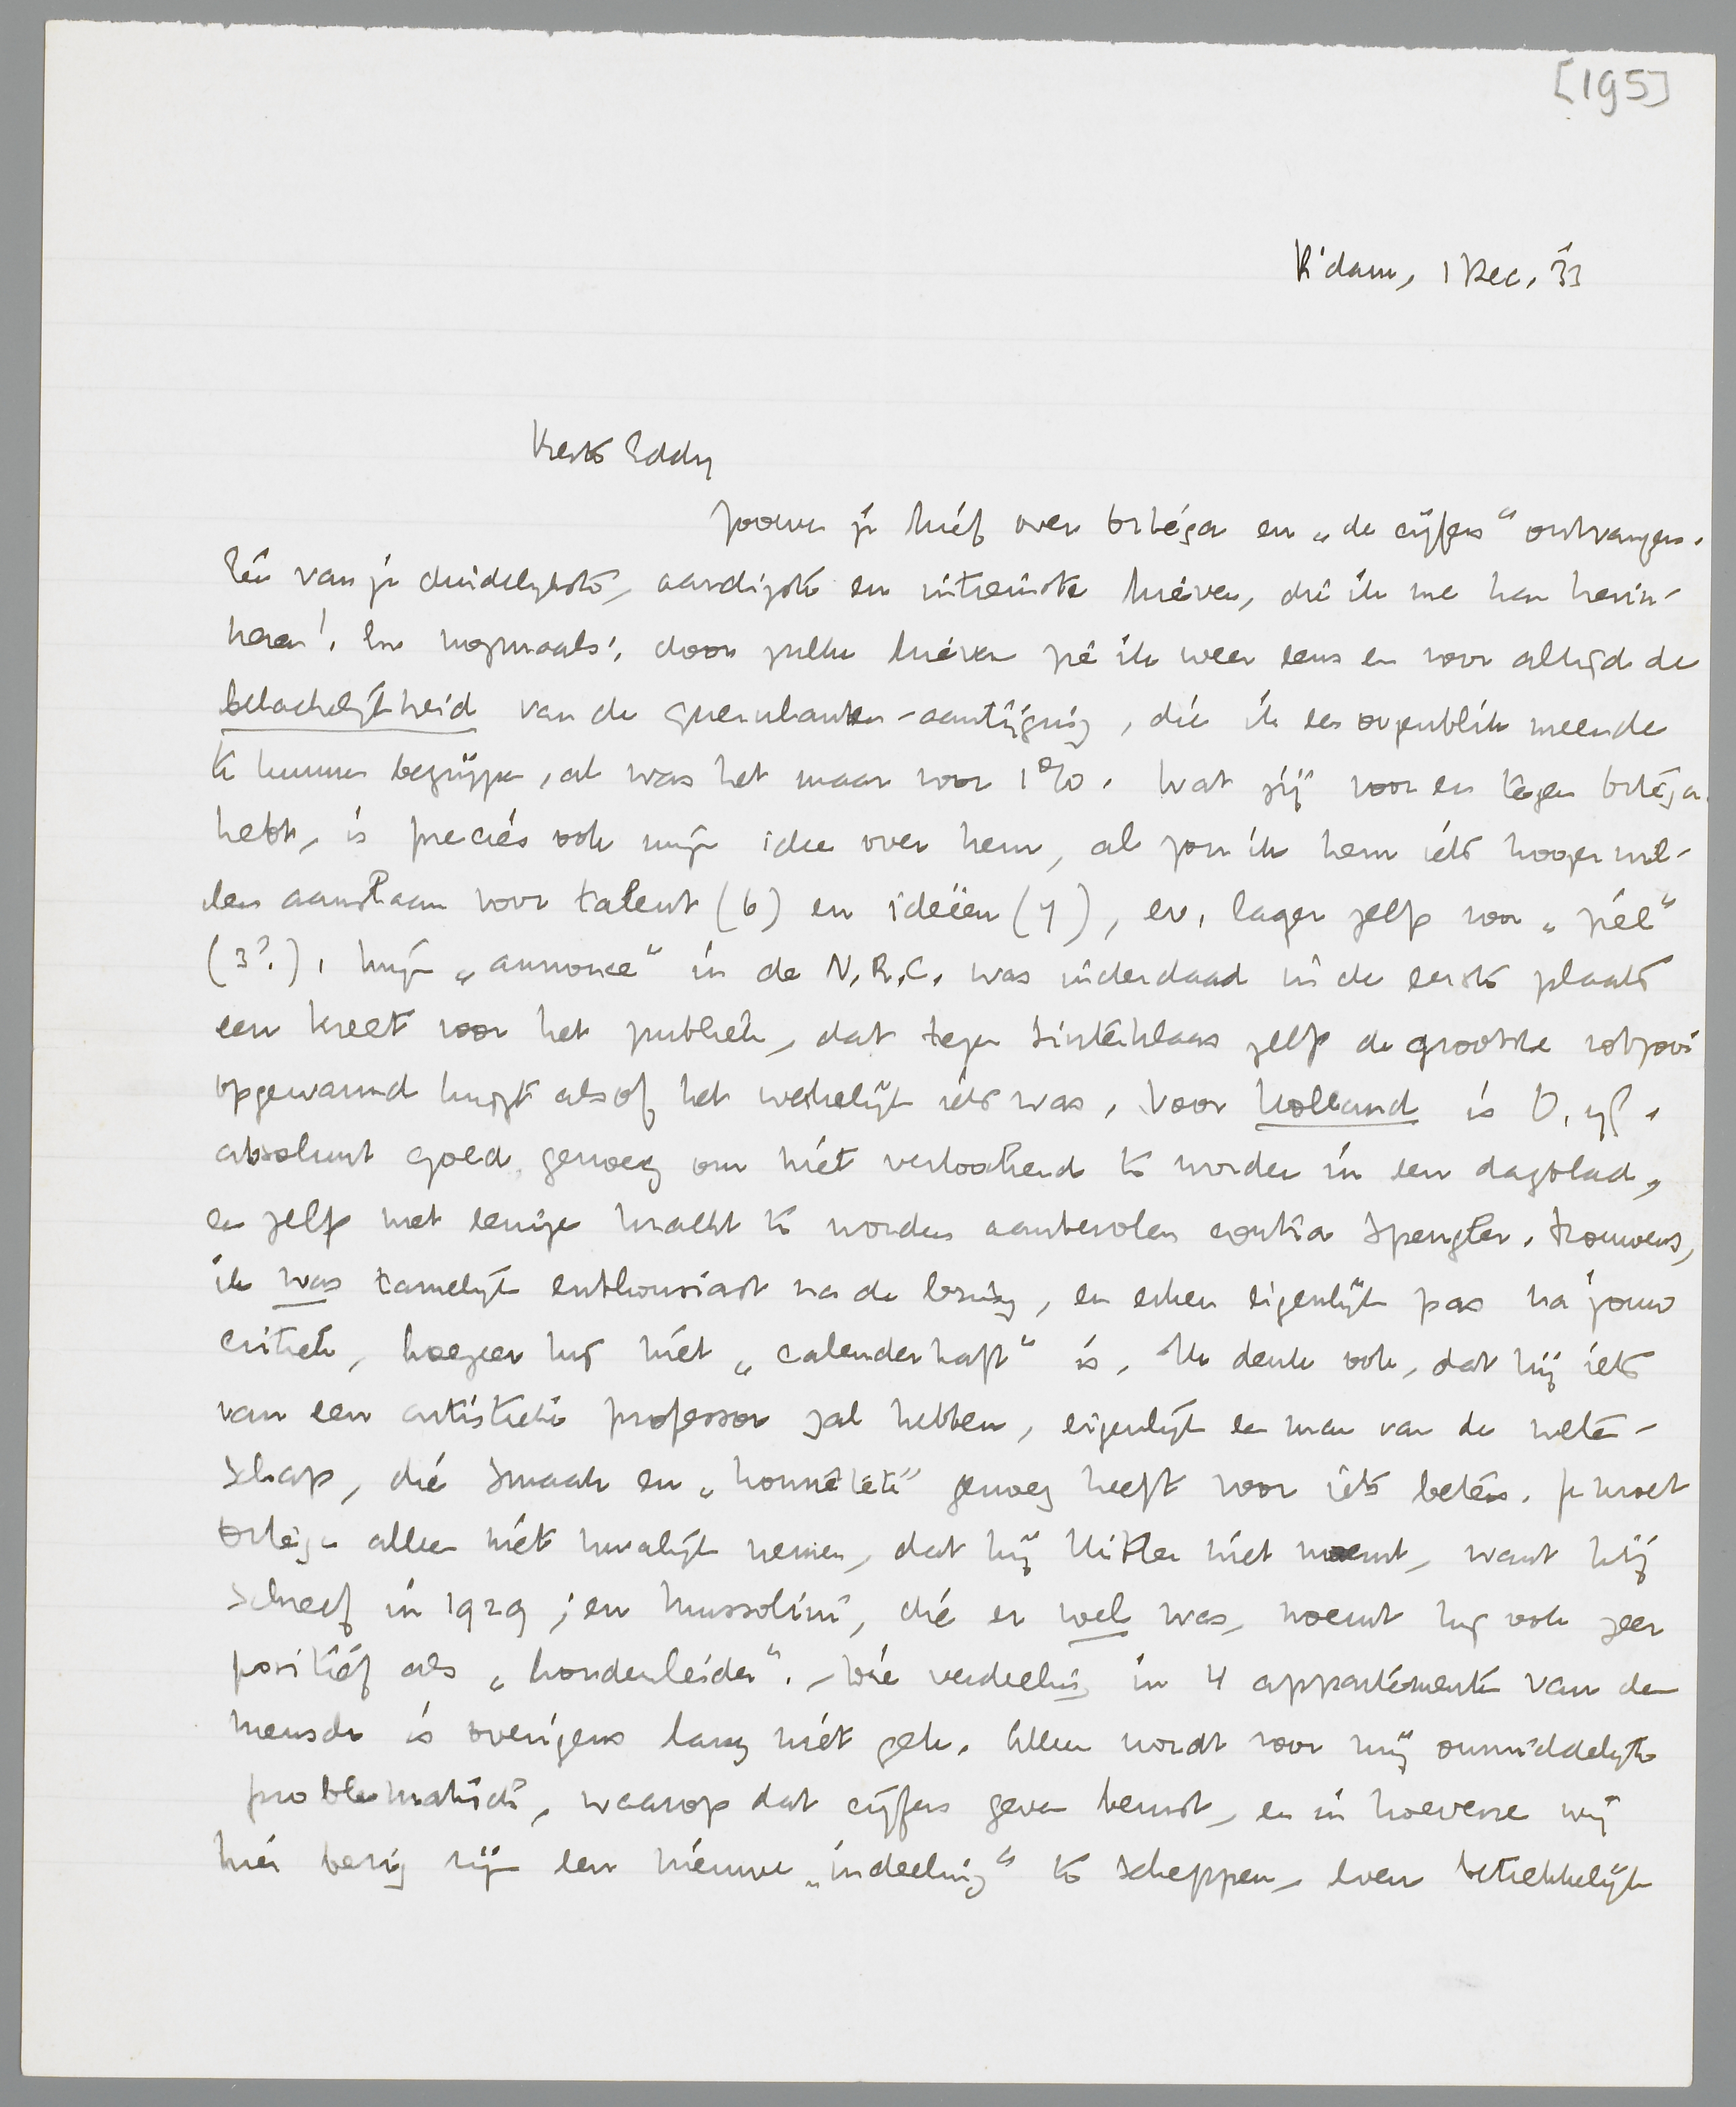 [195]
R'dam, 1 Dec. '33
Beste Eddy
Zooeven je brief over Ortéga en „de cijfers" ontvangen.
Eén van je duidelykste, aardigste en intiemste brieven, die ik me kan herin-
neren! En nogmaals: door zulke brieven zie ik weer eens en voor altijd de
belachelijkheid van de querulanten-aantijging, die ik een oogenblik meende
te kunnen begrijpen, al was het maar voor 1%. Wat jij voor en tegen Ortéga
hebt, is precies ook mijn idee over hem, al zou ik hem iets hooger wil-
len aanslaan voor talent (6) en ideëen (7), ev. lager zelfs voor „ziel"
(3?). Mijn „annonce" in de N.R.C. was inderdaad in de eerste plaats
een kreet voor het publiek, dat tegen Sinterklaas zelfs de grootste rotzooi
opgewarmd krijgt alsof het werkelijk iets was. Voor Holland is O. y G.
absoluut goed genoeg om niet verloochend te worden in een dagblad,
en zelfs met eenige kracht te worden aanbevolen contra Spengler. Trouwens,
ik was tamelijk enthousiast na de lezing, en erken eigenlijk pas na jouw
critiek, hoezeer hij niet „calenderhaft" is. Ik denk ook, dat hij iets
van een artistieke professor zal hebben, eigenlijk een man van de weten-
schap, die smaak en „honnêteté" genoeg heeft voor iets beters. Je moet
Ortéga alleen niet kwalijk nemen, dat hij Hitler niet noemt, want hij
schreef in 1929; en Mussolini, die er wel was, noemt hij ook zeer
positief als „hordenleider". – Die verdeeling in 4 appartementen van de
mensch is overigens lang niet gek. Alleen wordt voor mij onmiddelijk
problematisch, waarop dat cijfers geven berust, en in hoeverre wij
hier bezig zijn een nieuwe „indeeling" te scheppen, even betrekkelijk